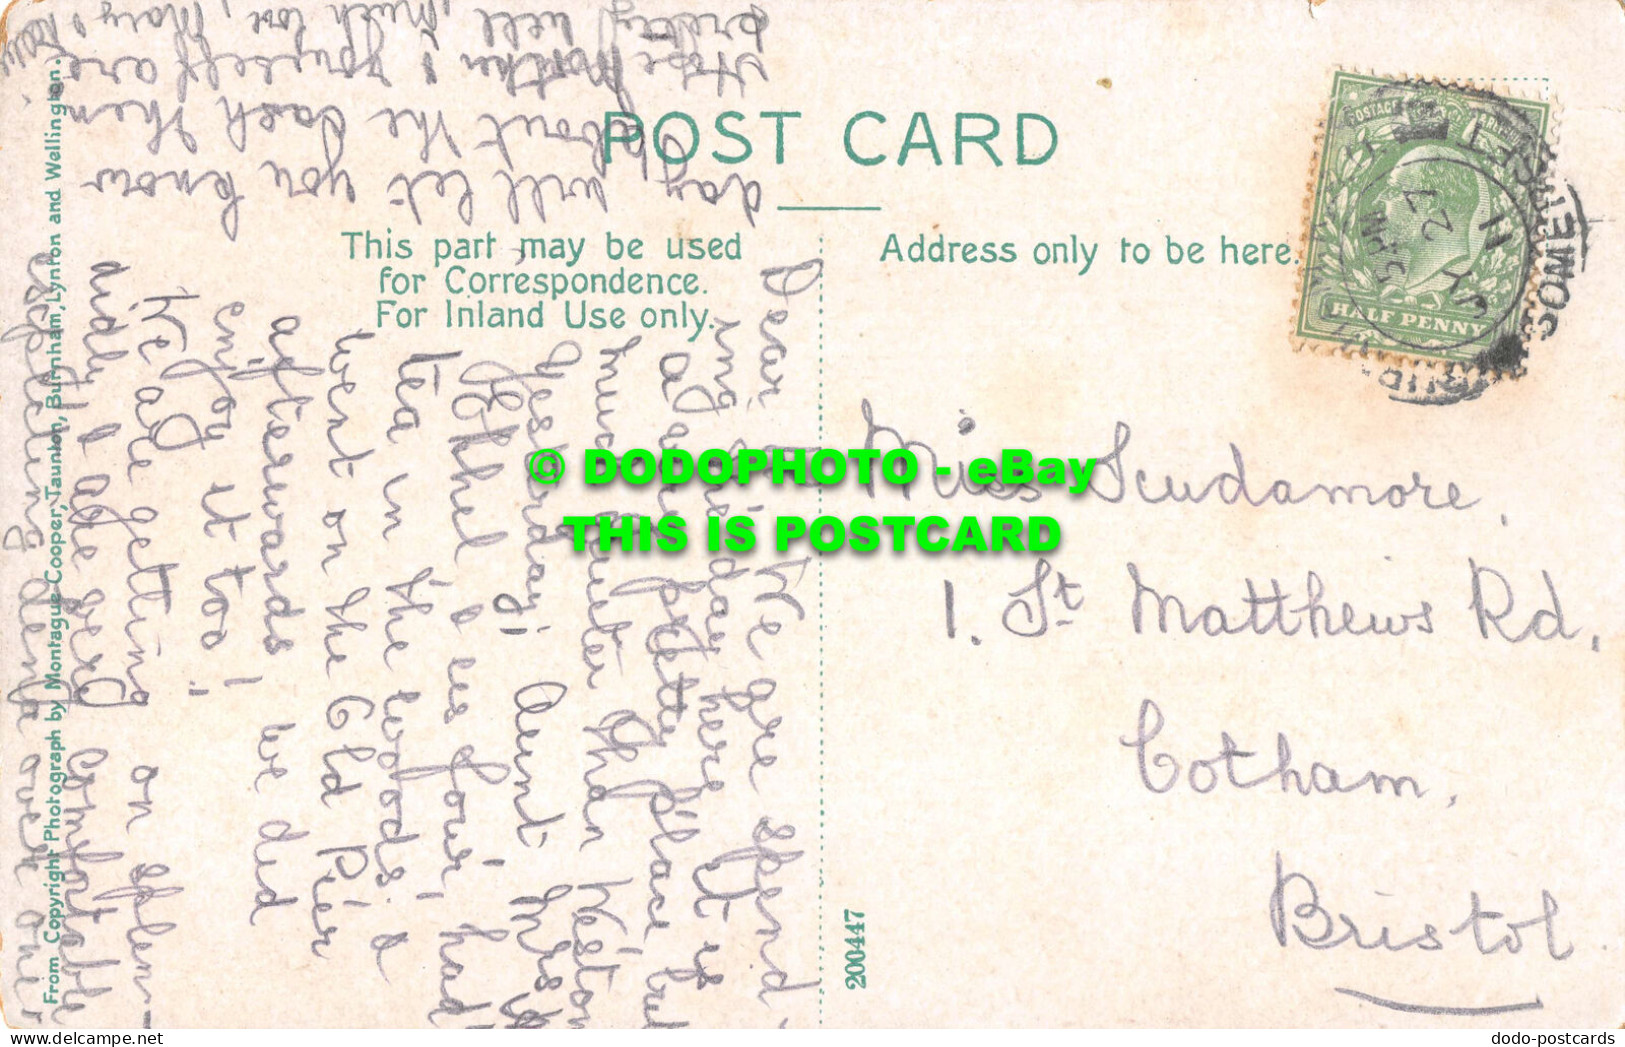 POST CARD
This part may be used
for Correspondence.
For Inland Use only.
Address only to be here.
POSTAGE
HALF PENNY
SOMERSET
5 PM
JY 27
11
Miss Scudamore,
1. St Matthews Rd,
Cotham,
Bristol
Dear We are spend-
ing a day here. It is
a pretty place but
much quieter than Weston
yesterday; Aunt, Mrs
Ethel & us four, had
tea in the woods, &
went on the Old Pier
afterwards! we did
enjoy it too!
We are getting on splen-
didly & are very comfortable
expecting deny a over one
day will let you know
about the each then
Hope Mother & yourself are
pretty well, Much love, Mary
From Copyright Photograph by Montague Cooper, Taunton, Burnham, Lynton and Wellington.
200447
© DODOPHOTO - eBay
THIS IS POSTCARD
dodo-postcards